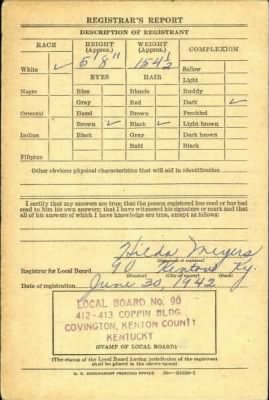 REGISTRAR'S REPORT
DESCRIPTION OF REGISTRANT
RACE HEIGHT (Approx.) WEIGHT (Approx.) COMPLEXION
White ✓ 5' 8" 154½ Sallow
EYES HAIR Light
Negro Blue Blonde Ruddy
Gray Red Dark ✓
Oriental Hazel Brown Freckled
Brown ✓ Black ✓ Light brown
Indian Black Gray Dark brown
Bald Black
Filipino
Other obvious physical characteristics that will aid in identification
I certify that my answers are true; that the person registered has read or has had
read to him his own answers; that I have witnessed his signature or mark and that
all of his answers of which I have knowledge are true, except as follows:
Hilda Meyers
(Signature of registrar)
Registrar for Local Board 90 Kenton Ky.
(Number) (City or county) (State)
Date of registration June 30, 1942
LOCAL BOARD No. 90
412-413 COPPIN BLDG.
COVINGTON, KENTON COUNTY
KENTUCKY
(STAMP OF LOCAL BOARD)
(The stamp of the Local Board having jurisdiction of the registrant
shall be placed in the above space)
U. S. GOVERNMENT PRINTING OFFICE